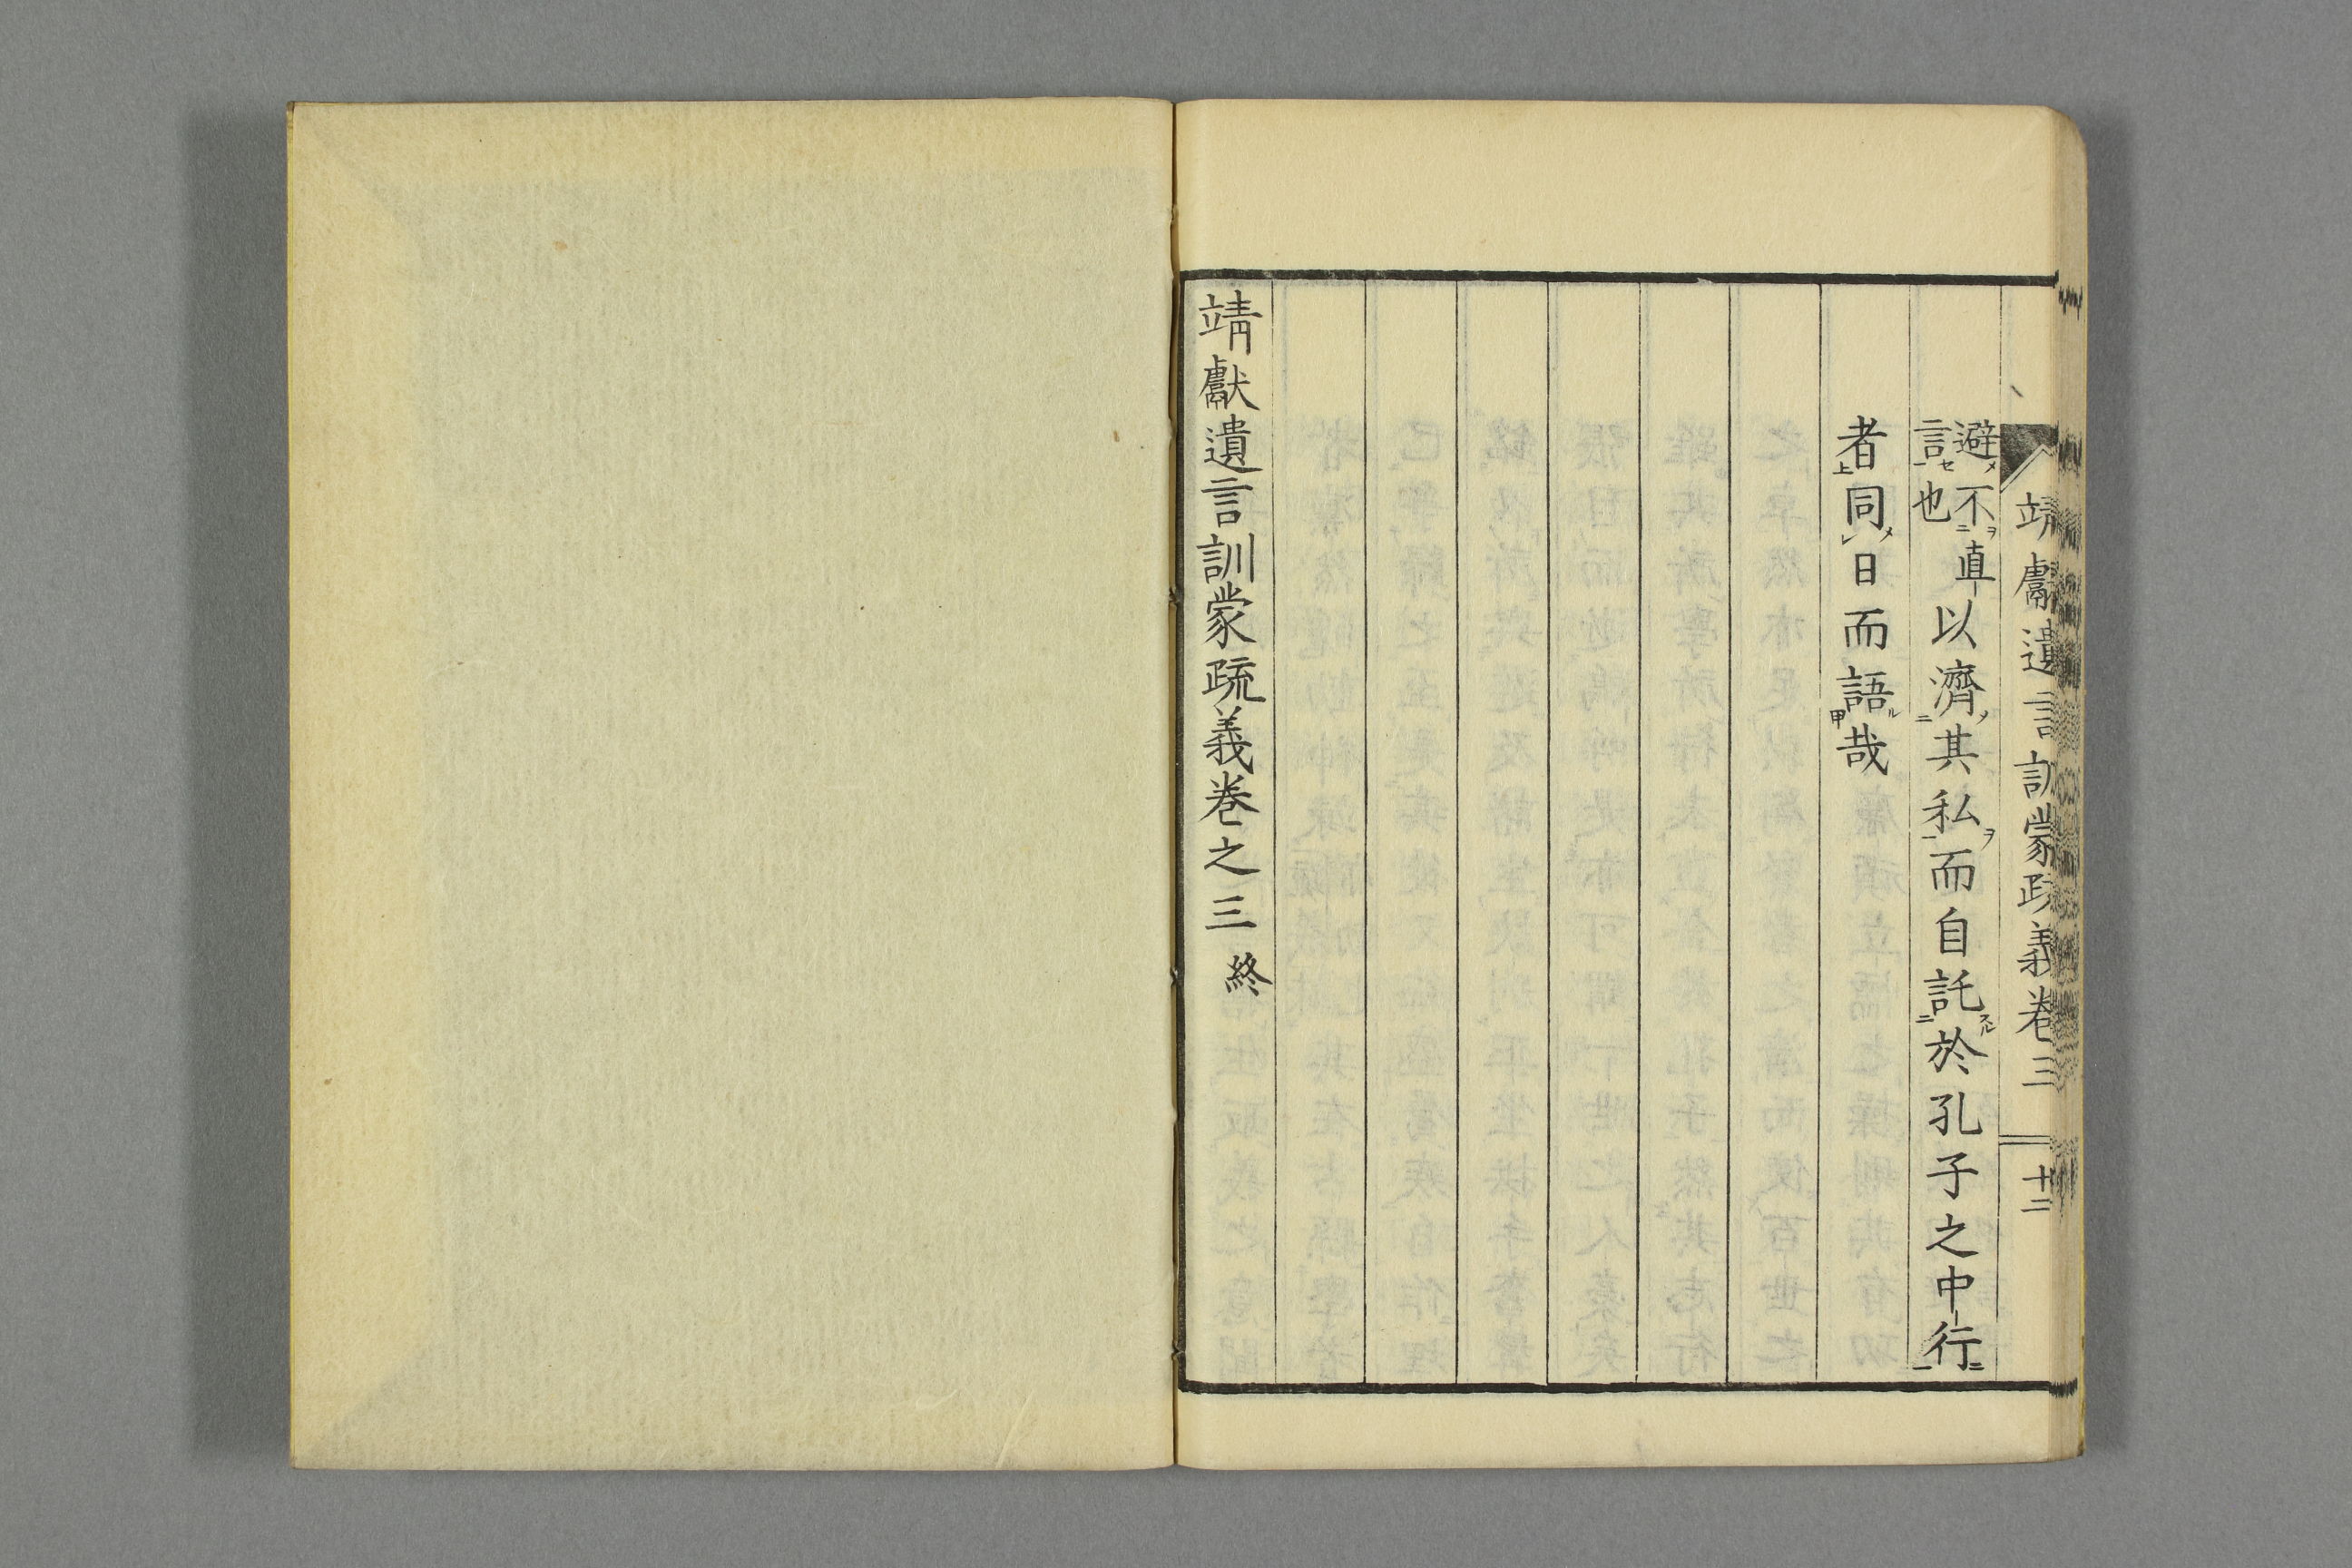 靖獻遺言訓蒙疏義卷三 十二
避不直
言也
以濟其私而自託於孔子之中行
者同日而語哉
靖獻遺言訓蒙疏義卷之三 終